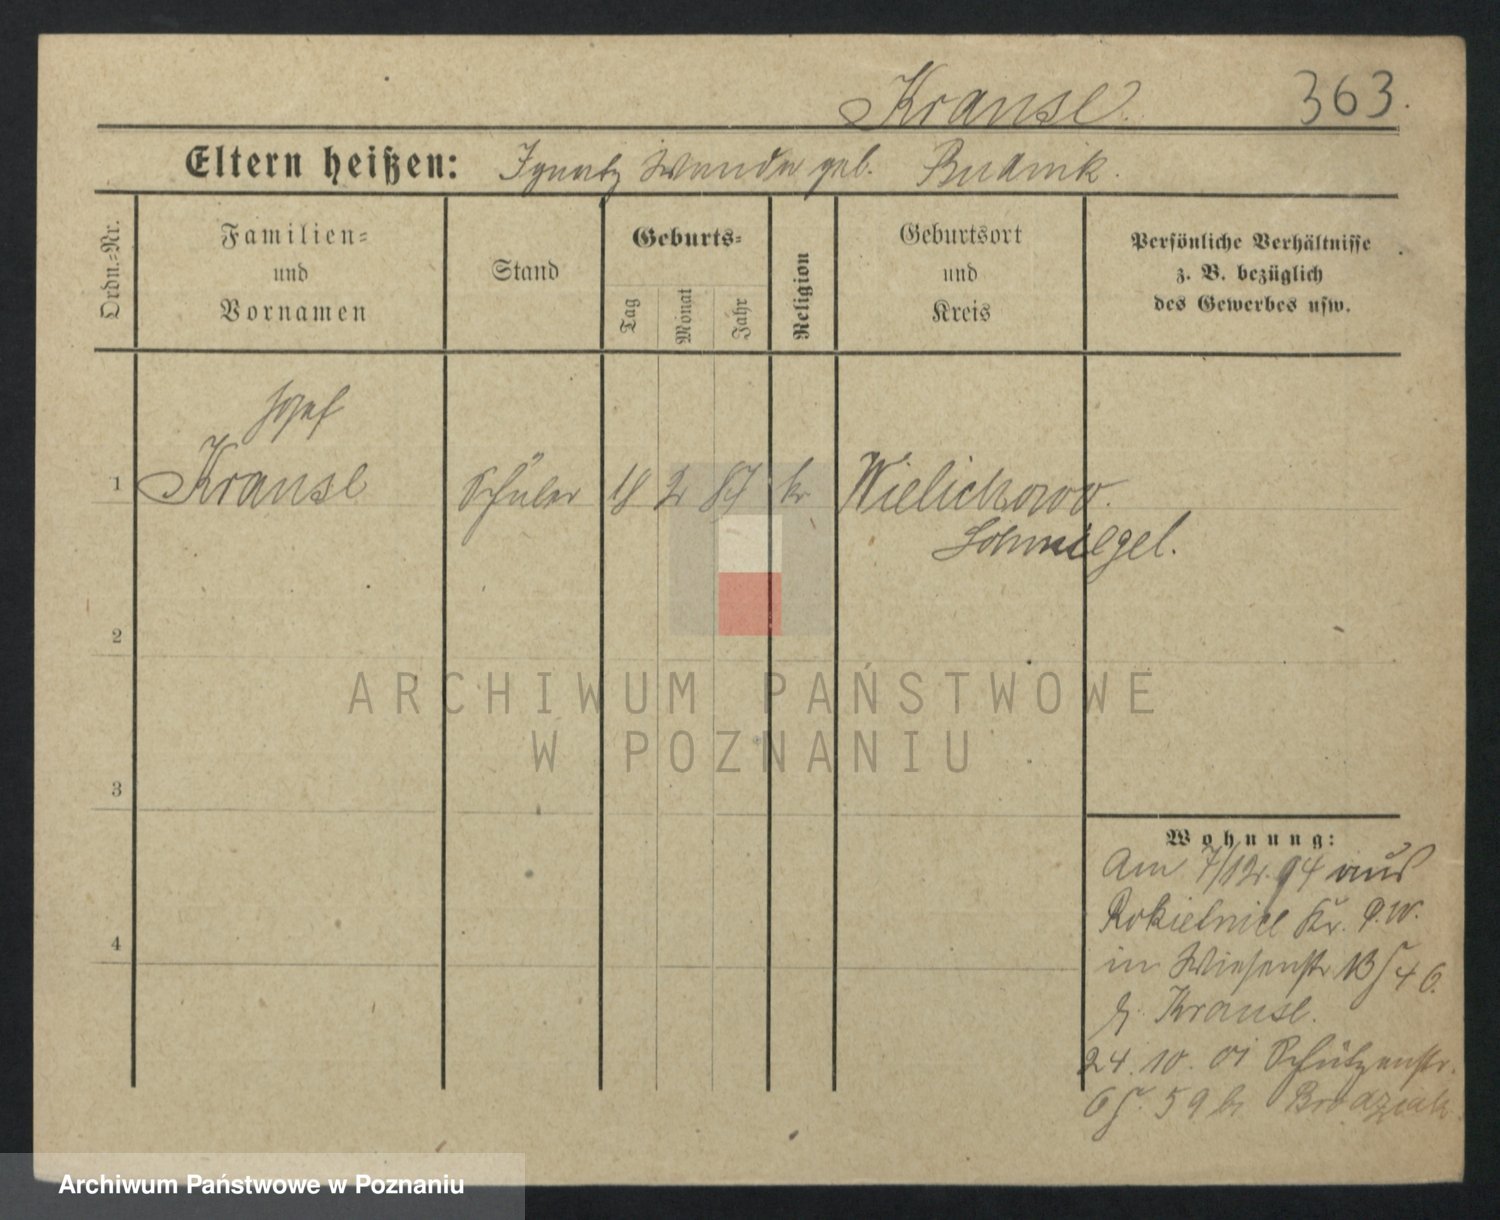 Krause.
363.
Eltern heißen: Ignatz Wanda geb. Rudnik.
Ordn.-Nr.
Familien-
und
Vornamen
Stand
Geburts-
Tag
Monat
Jahr
Religion
Geburtsort
und
Kreis
Persönliche Verhältnisse
z. B. bezüglich
des Gewerbes usw.
Josef
1 Krause Schüler 18 2 87 k. Wielichowo.
Schmiegel.
2
ARCHIWUM PAŃSTWOWE
W POZNANIU
3
Wohnung:
Am 7/12. 94 aus
Rokietnice Kr. P.W.
in Wiesenstr 13 S 46.
b. Krause.
4
24. 10. 01 Schützenstr.
6 S. 59 b. Brodziak
Archiwum Państwowe w Poznaniu